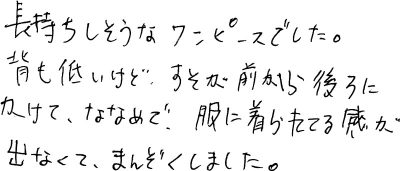 長持ちしそうなワンピースでした。
背も低いけど、すそが前から後ろに
かけて、ななめで、服に着られてる感が
出なくて、まんぞくしました。